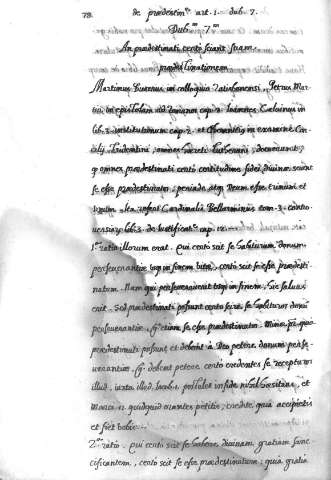 78. de prædestin.ne art. 1. dub. 7.
Dub.m 7.m
An prædestinati certo sciant suam
prædestinationem
Martinus Bucerus in colloquio Ratisbonensi, Petrus Mar
tir in epistolam ad Romanos cap. 8. Ioannes Calvinus in
lib. 3. institutionum cap. 2. et Chemnitius in examine Con
cilij Tridentini, omnes
omnes prædestinati certo certitudine fidei divinæ sciunt
se esse prædestinatos; perinde atq Deum esse trinum et
unum. Ita refert Cardinalis Bellarminius tom. 3. contro
versia lib. 3. de iustificat.ne cap.
1.a ratio illorum erat. Qui certo scit se habiturum donum
perseverantiæ usq in finem vitæ, certo scit se esse prædesti
natum. Nam qui perseveraverit usq in finem, hic salvus
erit. Sed prædestinati possunt certo scire se habituros donum
perseverantiæ, etiam se esse prædestinatos. Minor
prædestinati possunt, et debent à Deo petere donum perse
verantiæ, debent petere, certo credentes se recepturos
illud, iuxta illud Iacob. 1. postulet in fide nihil hæsitans, et
Marci 11. quidquid orantes petitis, credite, quia accipietis
et fiet vobis.
2.a ratio. Qui certo scit se habere divinam gratiam sanc
tificantem, certo scit se esse prædestinatum; quia gratia